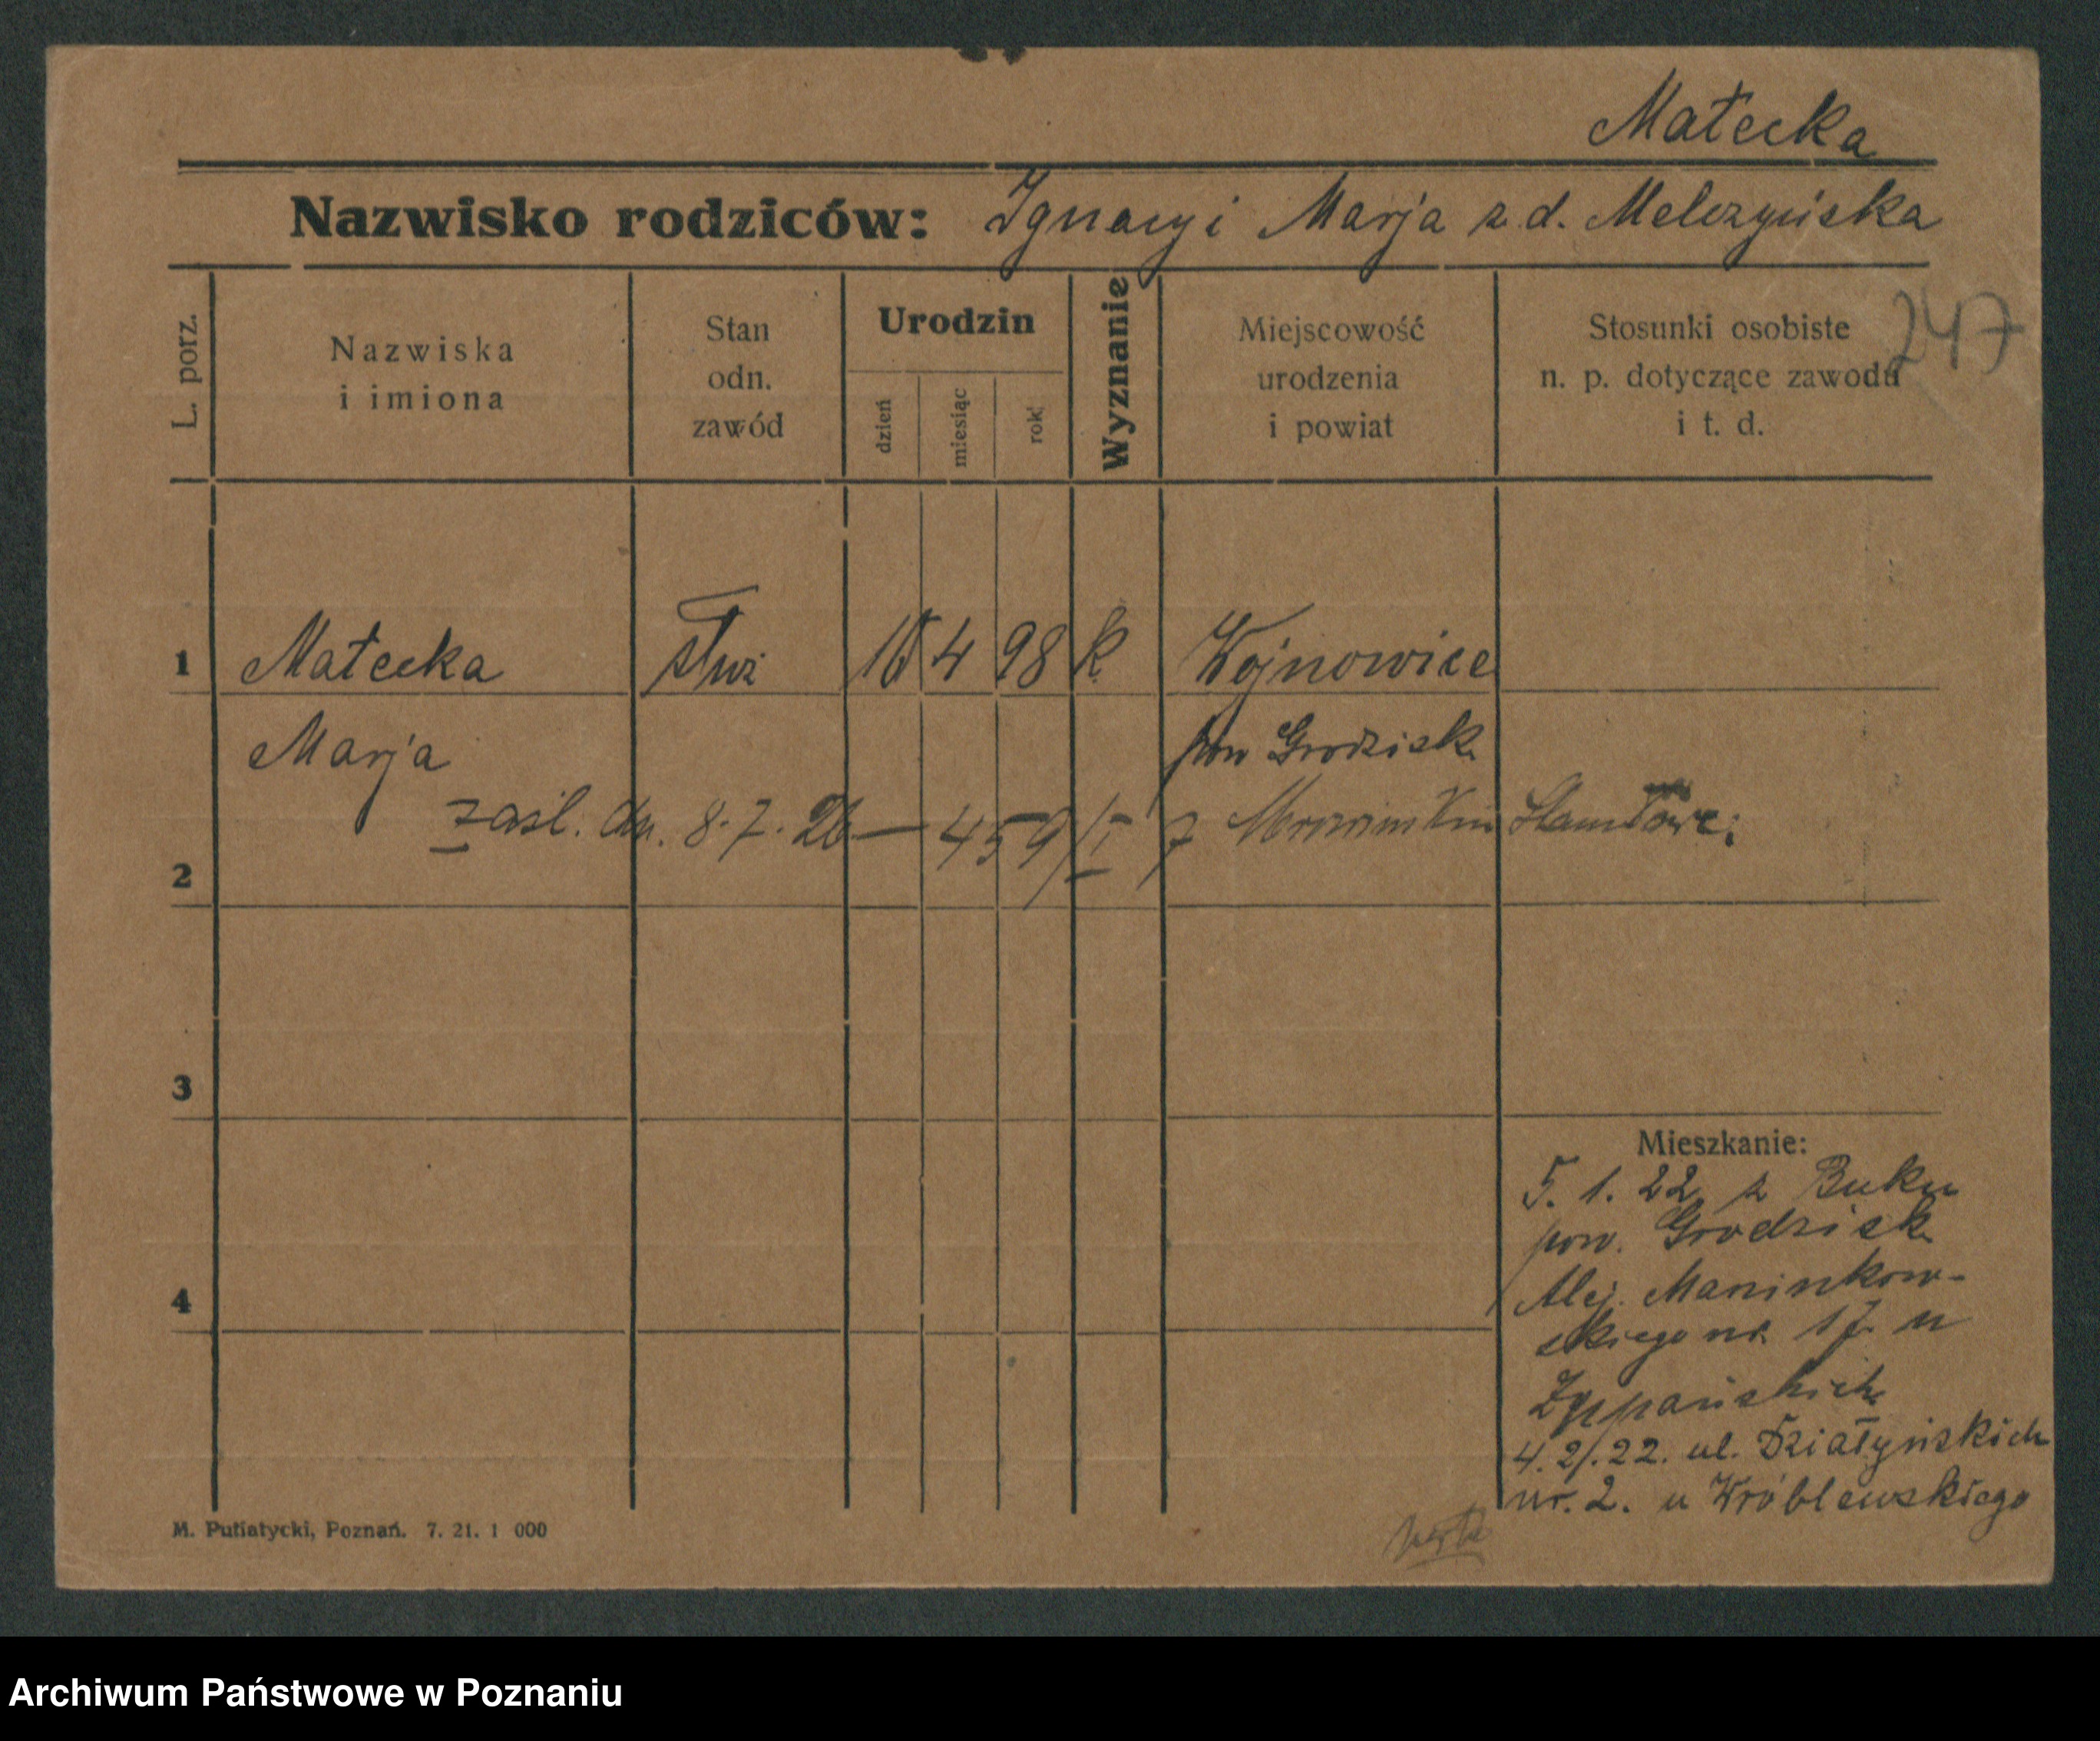 Małecka
Nazwisko rodziców: Ignacy i Marja z d. Melczyńska
247
L. porz.
Nazwiska
i imiona
Stan
odn.
zawód
Urodzin
dzień
miesiąc
rok
Wyznanie
Miejscowość
urodzenia
i powiat
Stosunki osobiste
n. p. dotyczące zawodu
i t. d.
1 Małecka służ 4 98 k. Wojnowice
Marja pow Grodzisk
zaśl. dn. 8.7.26 — 459/I
2
3
4
Mieszkanie:
5. 1. 22 z Buku
pow. Grodzisk
Alej. Marcinkow-
skiego nr. 17. u
4. 2. 22. ul. Działyńskich
nr. 2. u Wróblewskiego
M. Putiatycki, Poznań. 7. 21. 1 000
Archiwum Państwowe w Poznaniu